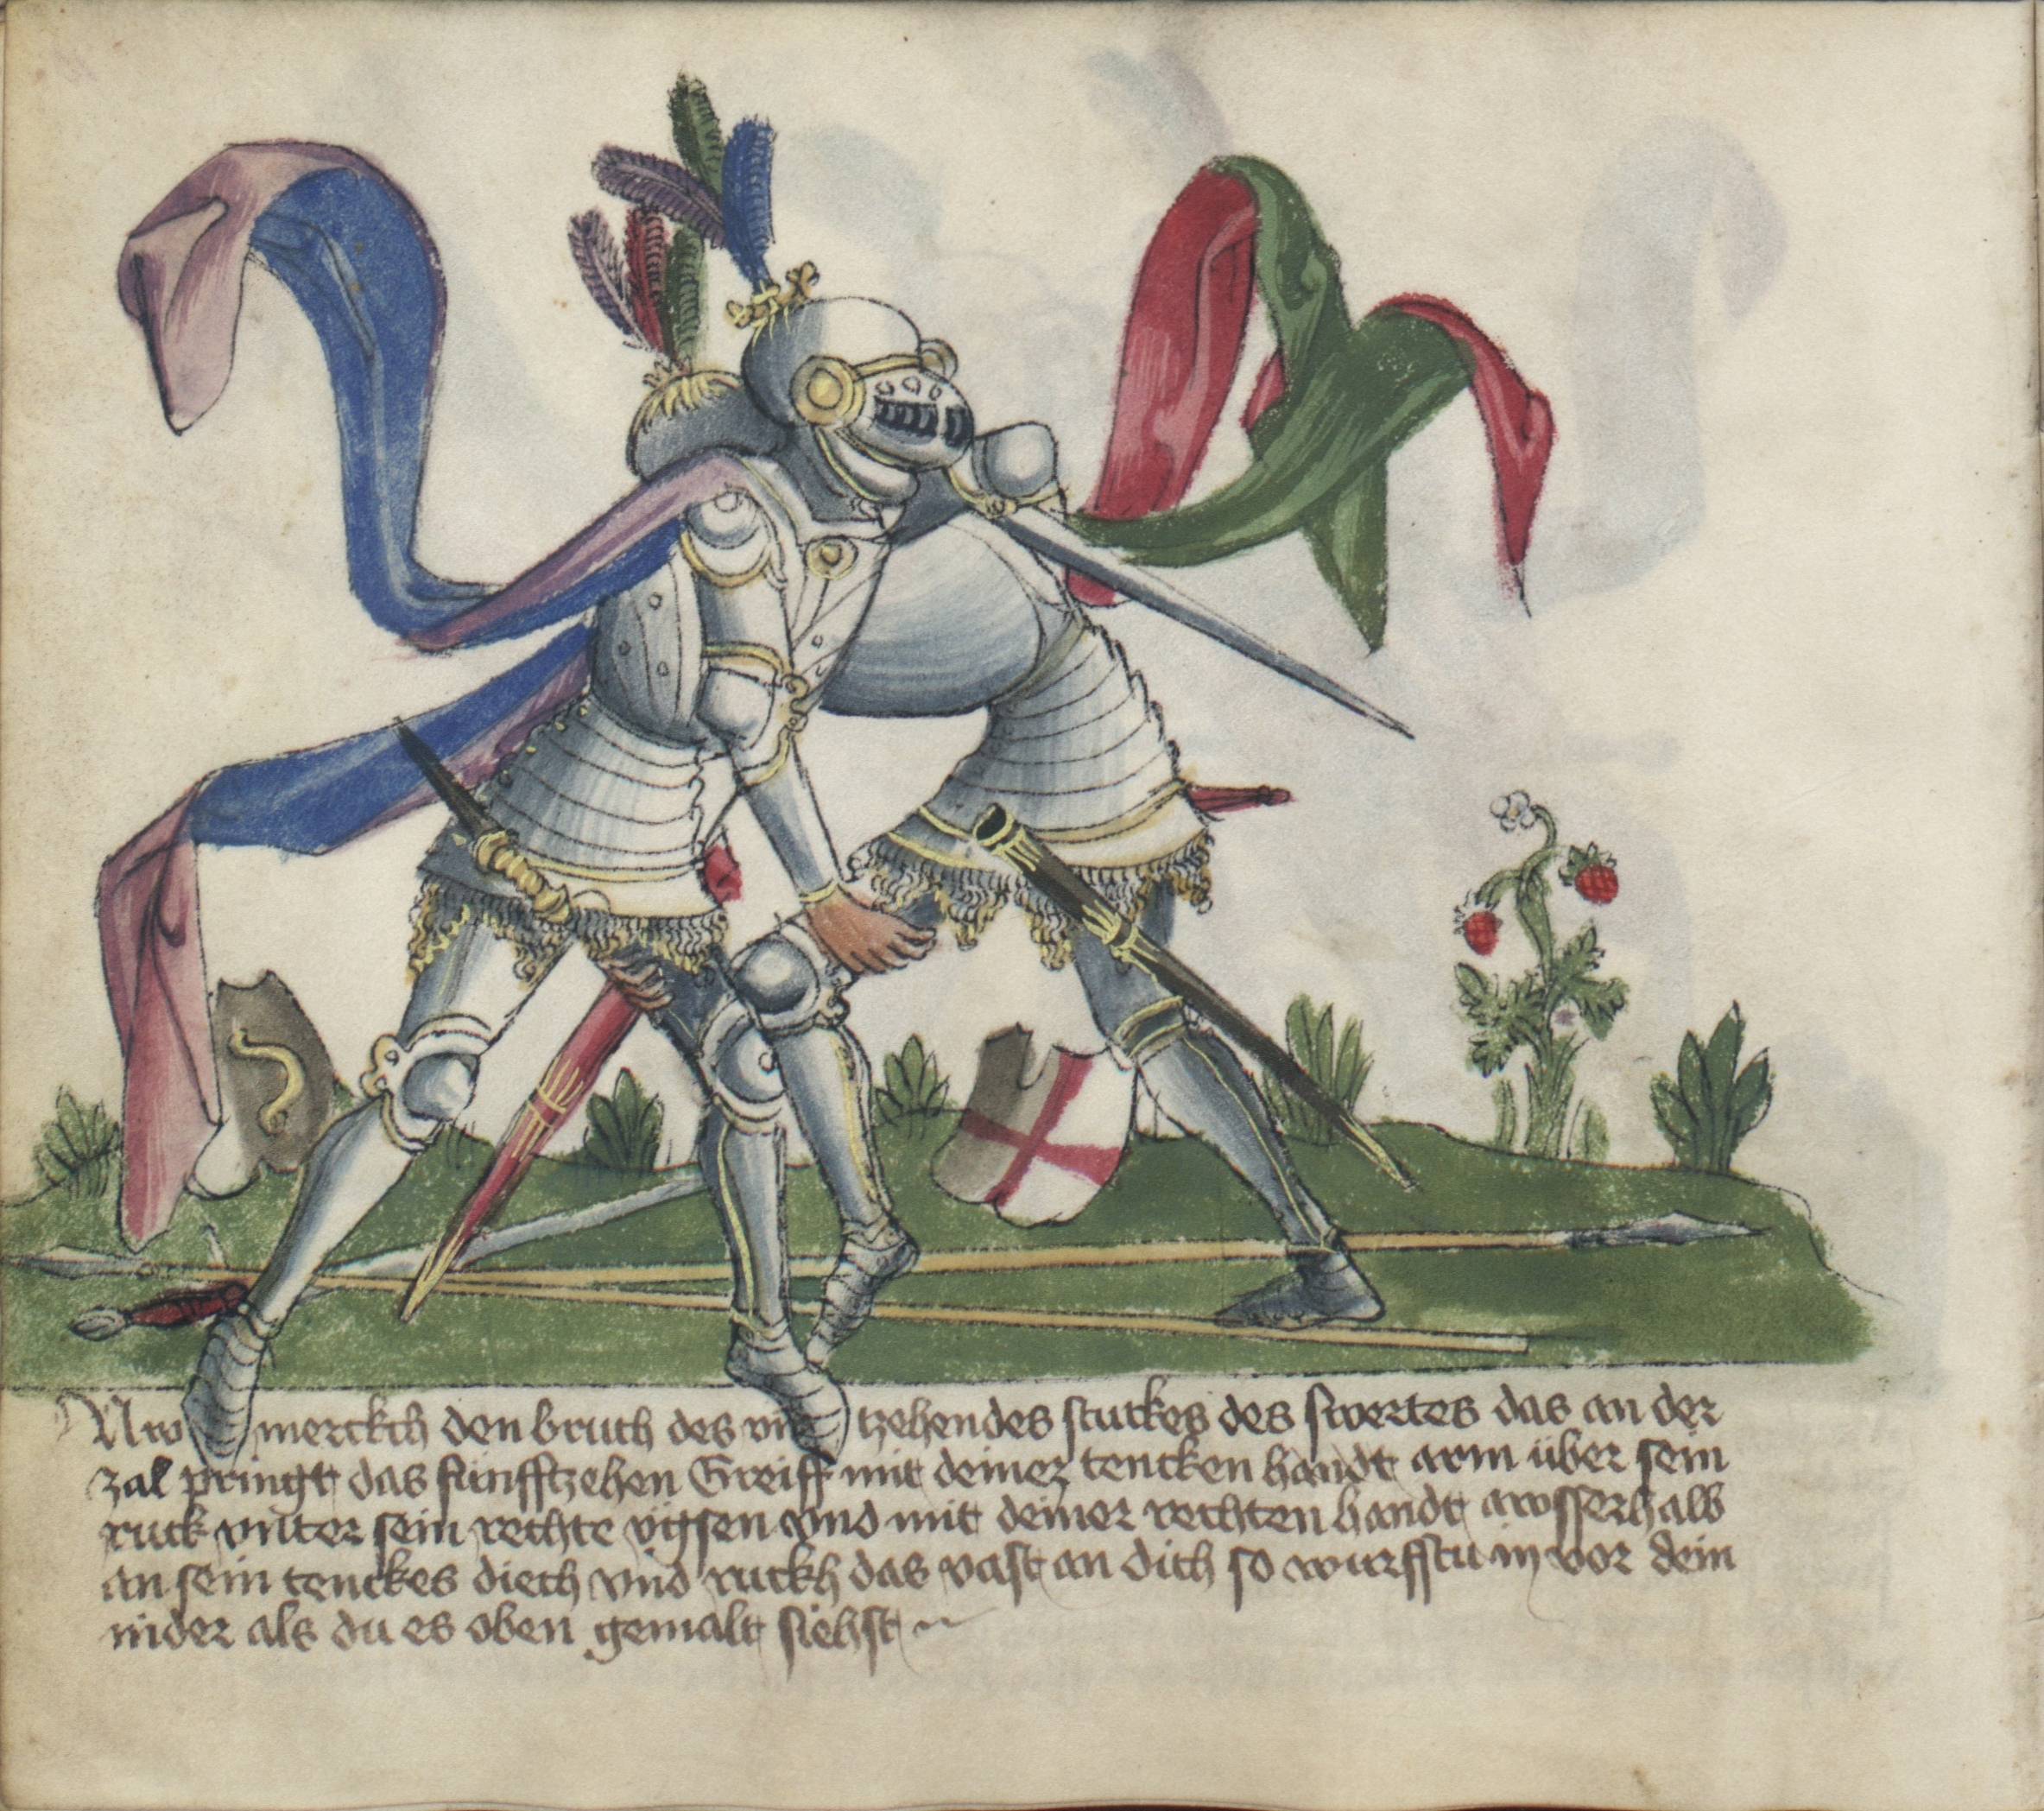 Nw merckch den bruch des vir tzehendes stuckes des swertes das an der
zal pringt das funfftzehen Greiff mit deiner tencken handt arm über sein
ruck vnter sein rechte vchsen vnd mit deiner rechten handt awsserhalb
an sein tenckes diech vnd ruckh das vast an dich so wurffstu in vor dein
nider als du es oben gemalt siehst